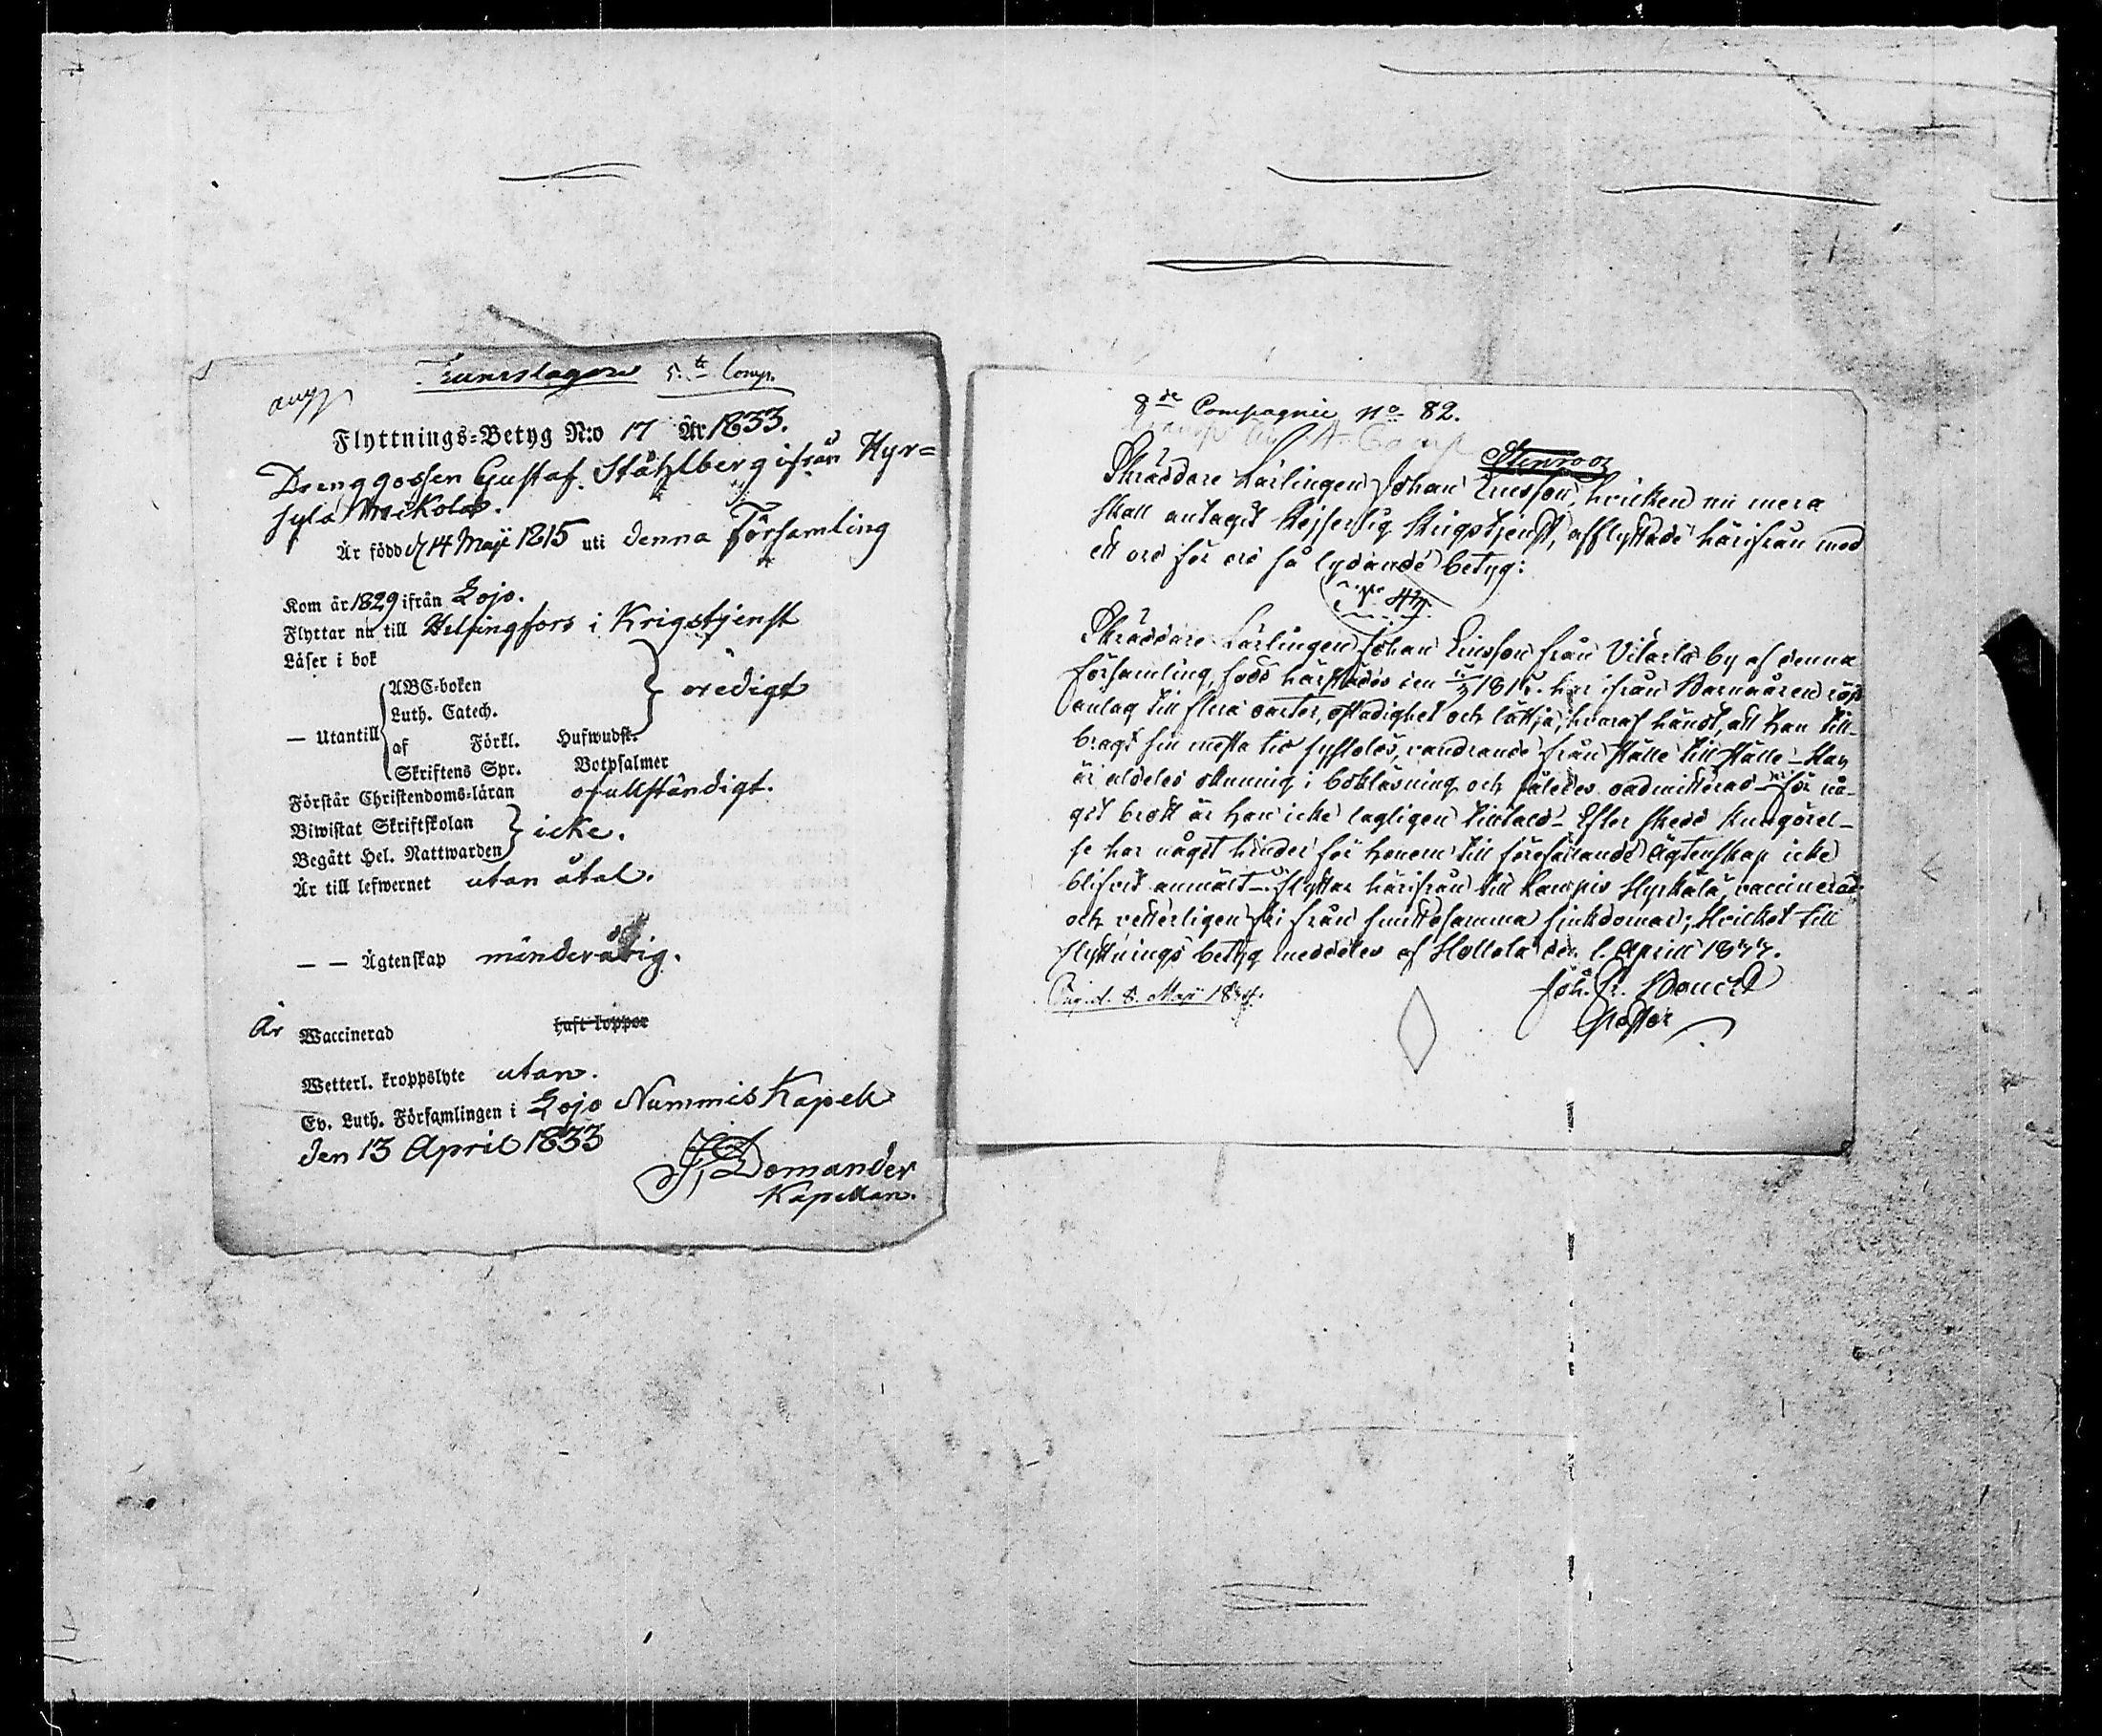 Trumslagare 5.te Comp.
Flyttnings-Betyg N:o 17 År 1833.
Drenggossen Gustaf Ståhlberg ifrån Hyr=
sylä Mikola.
Är född d 14 Maji 1815 uti denna Församling
Kom år 1829 ifrån Lojo.
Flyttar nu till Helsingfors i Krigstjenst
Läser i bok
ABC-boken
Luth. Catech.
oredigt
— Utantill
af Förkl. Hufwudst.
Skriftens Spr. Botpsalmer
Förstår Christendoms-läran ofullständigt.
Biwistat Skriftskolan
icke.
Begått Hel. Nattwarden
Är till lefwernet utan åtal.
— — Ägtenskap minderårig.
Är Waccinerad haft koppor
Wetterl. kroppslyte utan.
Ev. Luth. Församlingen i Lojo Nummis Kapell
den 13 April 1833
Domander
Kapellan.
8de Compagnie No 82.
Stenroos
Skräddare Lärlingen Johan Ericsson, hvilken nu mera
skall antagit Kejserlig Krigstjenst, afflyttade härifrån med
ett ord för ord så lydande betyg:
Skräddare Lärlingen Johan Ericsson från Vilarla by af denna
församling, född härstädes den 181 har ifrån Barnaåren röjt
anlag till flera oarter, ostadighet och lättja, hvaraf händt, att han till-
bragt sin mesta tid sysslolös, vandrande från ställe till ställe – Han
är aldeles okunnig i bokläsning och således oadmitterad – för nå-
got brott är han icke lagligen tilltald – Efter skedd kungörel-
se har något hinder för honom till förefallande ägtenskap icke
blifvit anmält – flyttar härifrån till Lampis Hyrkälä, vaccinerad
och vetterligen fri från smittosamma sjukdomar; Hvilket till
flyttnings betyg meddeles af Hollola den 1. Aprill 1833.
Joh. Fr.
Pastor